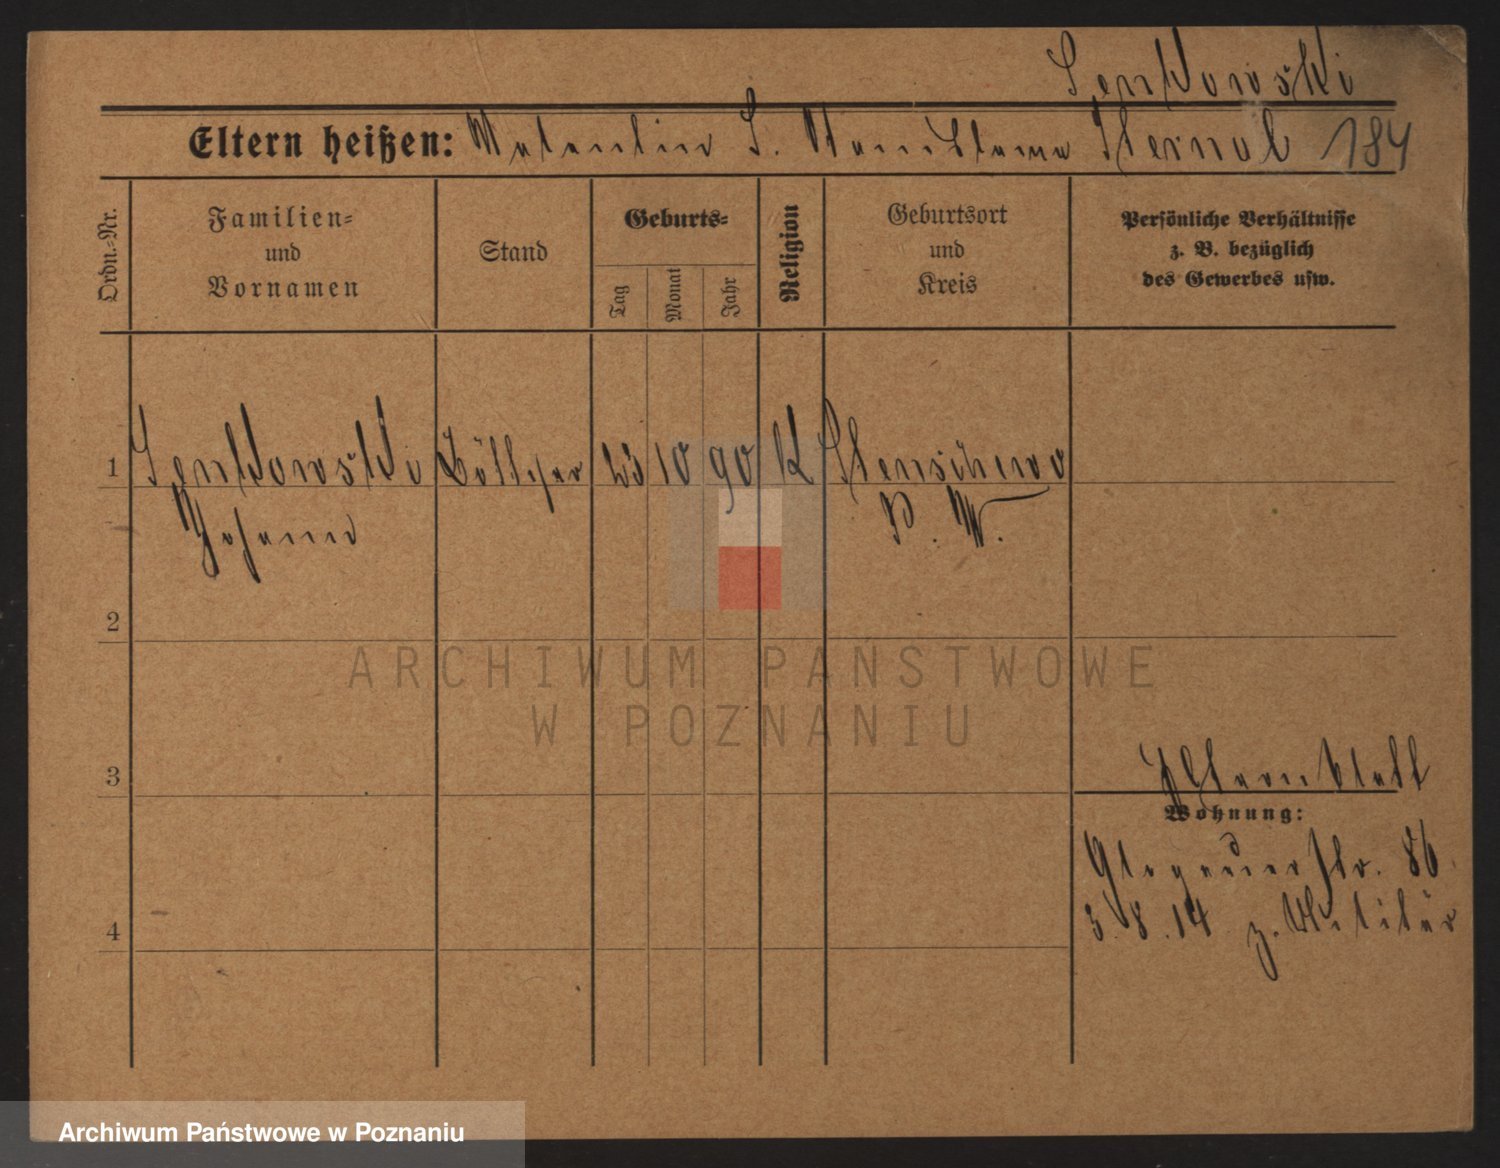 Senkowski
Eltern heißen: Valentin S. Stanislawa Sternal 184
Ordn.-Nr.
Familien-
und
Vornamen
Stand
Geburts-
Tag
Monat
Jahr
Religion
Geburtsort
und
Kreis
Persönliche Verhältnisse
z. B. bezüglich
des Gewerbes usw.
1 Senkowski Böttcher 23 10 90 K Stenschewo
Johann P. W.
2
3
Wohnung:
Glogauerstr. 86
3.8.14 z. Militär
4
ARCHIWUM PAŃSTWOWE
W POZNANIU
Archiwum Państwowe w Poznaniu